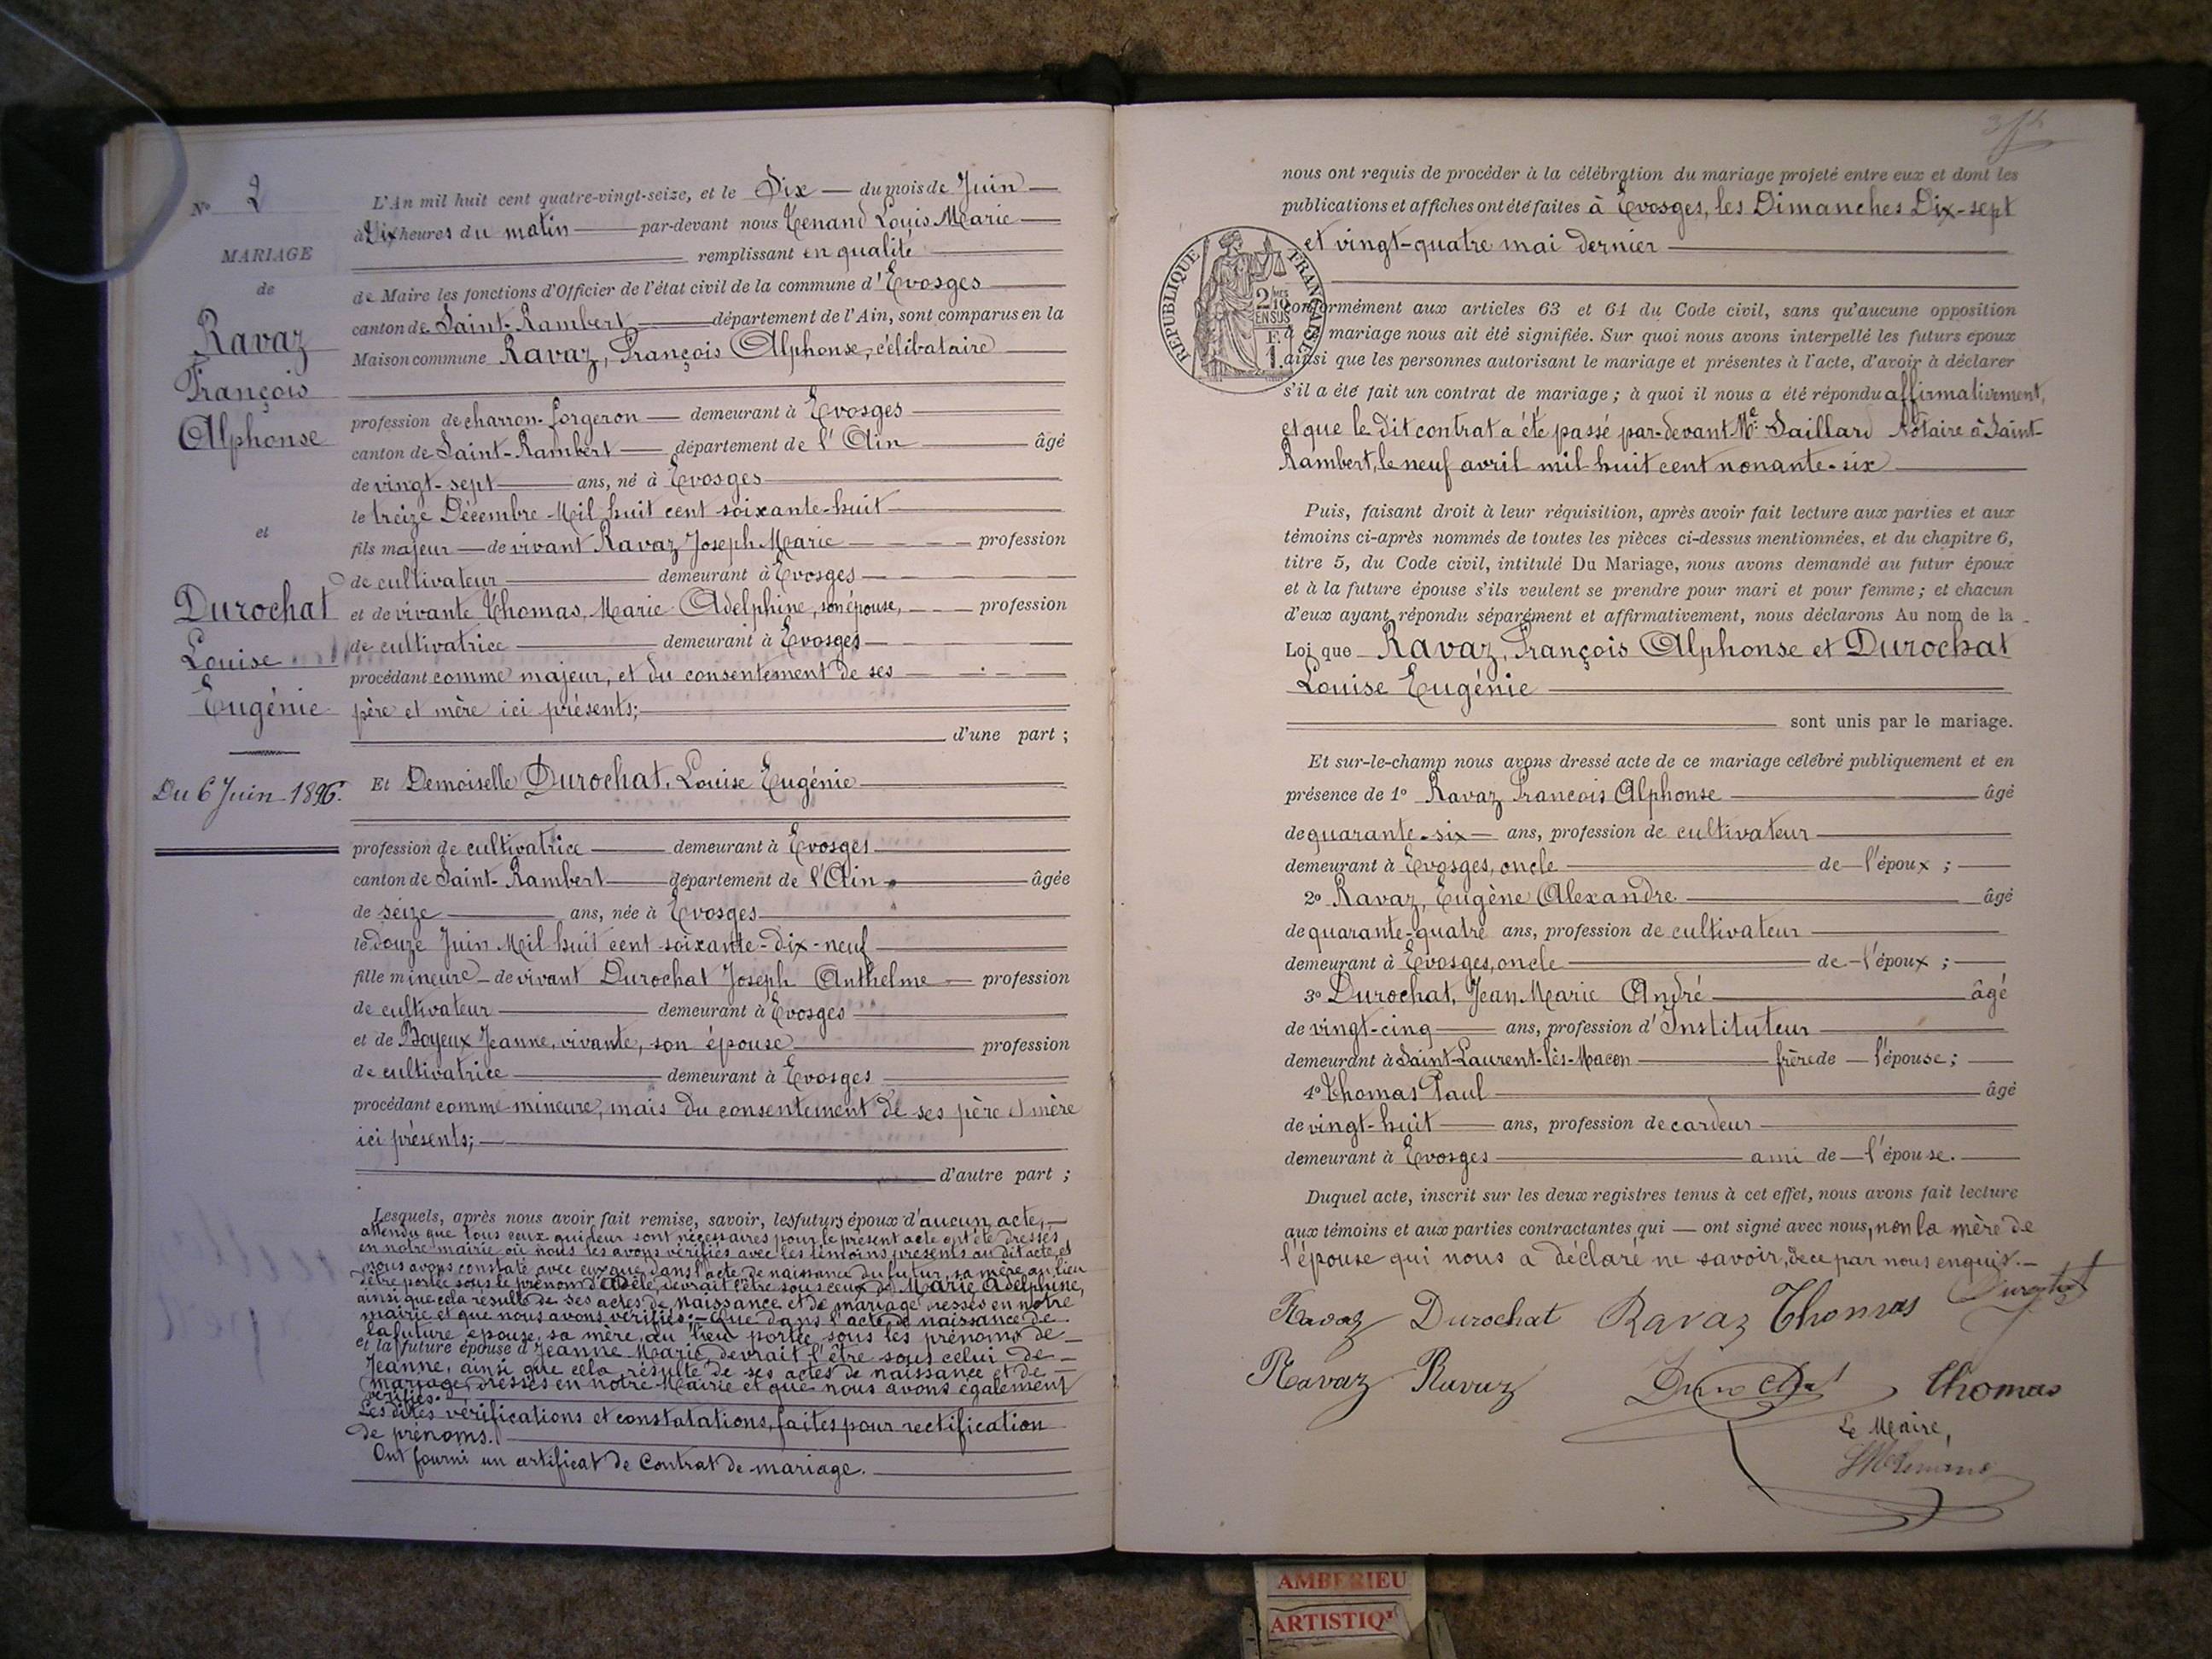 N° 2
MARIAGE
de
Ravaz
François
Alphonse
et
Durochat
Louise
Eugénie
Du 6 Juin 1896.
L'An mil huit cent quatre-vingt-seize, et le Six du mois de Juin
à Dix heures du matin par-devant nous Tenand Louis Marie
remplissant en qualité
de Maire les fonctions d'Officier de l'état civil de la commune d'Evosges
canton de Saint-Rambert département de l'Ain, sont comparus en la
Maison commune Ravaz, François Alphonse, célibataire
profession de charron-forgeron demeurant à Evosges
canton de Saint-Rambert département de l'Ain âgé
de vingt-sept ans, né à Evosges
le treize Décembre Mil huit cent soixante-huit
fils majeur de vivant Ravaz Joseph Marie profession
de cultivateur demeurant à Evosges
et de vivante Thomas, Marie Adelphine, son épouse, profession
de cultivatrice demeurant à Evosges
procédant comme majeur, et du consentement de ses
père et mère ici présents;
d'une part ;
Et Demoiselle Durochat, Louise Eugénie
profession de cultivatrice demeurant à Evosges
canton de Saint-Rambert département de l'Ain âgée
de seize ans, née à Evosges
le douze Juin Mil huit cent soixante-dix-neuf
fille mineure de vivant Durochat Joseph Anthelme profession
de cultivateur demeurant à Evosges
et de Boyeux Jeanne, vivante, son épouse profession
de cultivatrice demeurant à Evosges
procédant comme mineure, mais du consentement de ses père et mère
ici présents;
d'autre part ;
Lesquels, après nous avoir fait remise, savoir, les futurs époux d'aucun acte,
attendu que tous ceux qui leur sont nécessaires pour le présent acte ont été dressés
en notre mairie où nous les avons vérifiés avec les témoins présents au dit acte, et
nous avons constaté avec eux que, dans l'acte de naissance du futur, sa mère, au lieu
d'être portée sous le prénom d'Adèle, devrait l'être sous ceux de Marie Adelphine,
ainsi que cela résulte de ses actes de naissance et de mariage dressés en notre
mairie et que nous avons vérifiés; Que dans l'acte de naissance de
la future épouse, sa mère, au lieu portée sous les prénoms de
et la future épouse d'Jeanne Marie, devrait l'être sous celui de
Jeanne, ainsi que cela résulte de ses actes de naissance et de
mariage, dressés en notre Mairie et que nous avons également
vérifiés.
Les dites vérifications et constatations, faites pour rectification
de prénoms.
Ont fourni un certificat de Contrat de mariage.
nous ont requis de procéder à la célébration du mariage projeté entre eux et dont les
publications et affiches ont été faites à Evosges, les Dimanches Dix-sept
et vingt-quatre mai dernier
REPUBLIQUE FRANÇAISE
2/10MES
EN SUS
F.
1.
conformément aux articles 63 et 64 du Code civil, sans qu'aucune opposition
à ce mariage nous ait été signifiée. Sur quoi nous avons interpellé les futurs époux
ainsi que les personnes autorisant le mariage et présentes à l'acte, d'avoir à déclarer
s'il a été fait un contrat de mariage ; à quoi il nous a été répondu affirmativement,
et que le dit contrat a été passé par-devant Me. Saillard Notaire à Saint-
Rambert, le neuf avril mil huit cent nonante-six
Puis, faisant droit à leur réquisition, après avoir fait lecture aux parties et aux
témoins ci-après nommés de toutes les pièces ci-dessus mentionnées, et du chapitre 6,
titre 5, du Code civil, intitulé Du Mariage, nous avons demandé au futur époux
et à la future épouse s'ils veulent se prendre pour mari et pour femme ; et chacun
d'eux ayant répondu séparément et affirmativement, nous déclarons Au nom de la
Loi que Ravaz, François Alphonse et Durochat
Louise Eugénie
sont unis par le mariage.
Et sur-le-champ nous avons dressé acte de ce mariage célébré publiquement et en
présence de 1° Ravaz Francois Alphonse âgé
de quarante-six ans, profession de cultivateur
demeurant à Evosges, oncle de l'époux ;
2° Ravaz, Eugène Alexandre âgé
de quarante-quatre ans, profession de cultivateur
demeurant à Evosges, oncle de l'époux ;
3° Durochat, Jean Marie André âgé
de vingt-cinq ans, profession d'Instituteur
demeurant à Saint-Laurent-lès-Macon frère de l'épouse ;
4° Thomas Paul âgé
de vingt-huit ans, profession de cardeur
demeurant à Evosges ami de l'épouse.
Duquel acte, inscrit sur les deux registres tenus à cet effet, nous avons fait lecture
aux témoins et aux parties contractantes, qui ont signé avec nous, non la mère de
l'épouse qui nous a déclaré ne savoir, de ce par nous enquis.
Ravaz Durochat Ravaz Thomas Durochat
Ravaz Ravaz Durochat Thomas
Le Maire,
AMBERIEU
ARTISTIQ